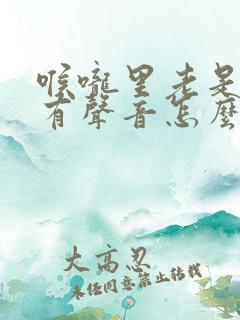 喉嚨里老是
有聲音怎麼
大高忍
未经同意禁止转载